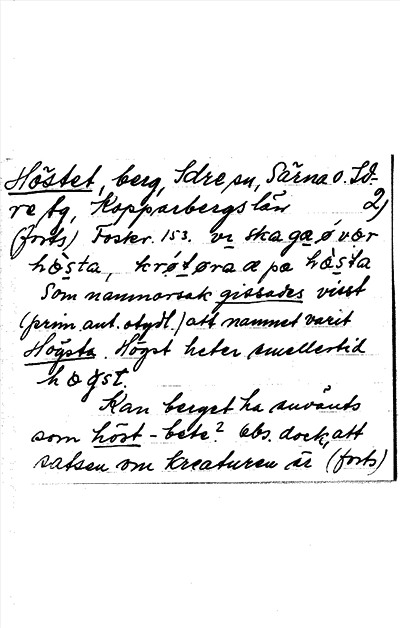 Höstet, berg, Idre sn, Särna o. Id-
re tg, Kopparbergs län 2)
(forts) Foster. 153. vi ska gæ ø vær
hæ̀sta, krø̀tøra æ pa hæ̀sta
Som namnorsak gissades visst
(prim. ant. otydl.) att namnet varit
Högsta. Högst heter emellertid
høgst.
Kan berget ha använts
som höst-bete? Obs. dock, att
satsen om kreaturen är (forts)